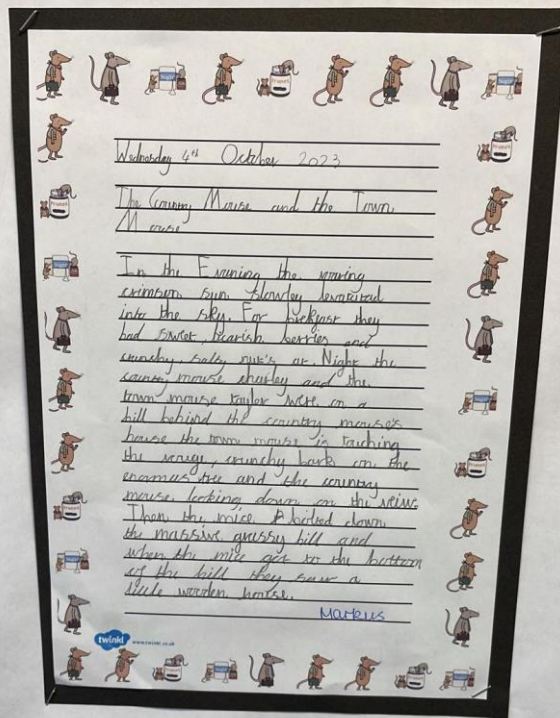 Wednesday 4th October 2023
The Country Mouse and the Town
Mouse
In the Evening the roaring
crimson sun slowley levatated
into the sky. For brekfast they
had sweet, bearish berries and
crunchy, salty nut's at Night the
country mouse sharley and the
town mouse taylor were on a
hill behind the country mouse's
house the town mouse is touching
the rouge, crunchy bark on the
enormus tree and the country
mouse looking down on the veiw.
Then the mice bolted down
the massive grassy hill and
when the mice got to the bottom
of the hill they saw a
little wooden house.
Markus
twinkl www.twinkl.co.uk